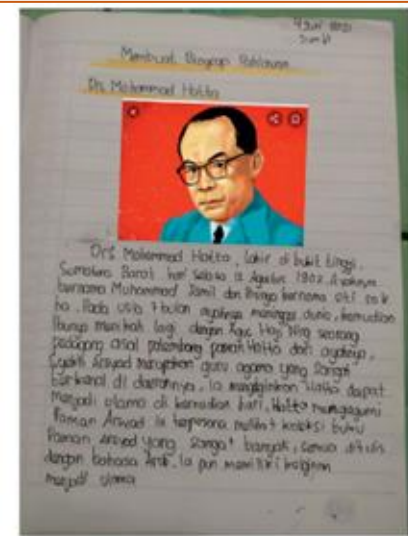 4 Juni 2021
Membuat Biograpi Pahlawan
Drs Mohammad Hatta
Drs Mohammad Hatta, lahir di bukit tinggi,
Sumatera Barat hari selasa 12 Agustus 1902. Ayahnya
bernama Muhammad Jamil dan Ibunya bernama siti
ha. Pada usia 7 bulan ayahnya meninggal dunia, kemudian
Ibunya menikah lagi dengan Haji Ning seorang
pedagang asal palembang paman Hatta dari ayahnya,
Syekh Arsyad merupakan guru agama yang sangat
terkenal di daerahnya, Ia menginginkan Hatta dapat
menjadi ulama di kemudian hari, Hatta mengagumi
Paman Arsyad ia terpesona melihat koleksi buku
Paman Arsyad yang sangat banyak, semua ditulis
dengan bahasa Arab. Ia pun memiliki keinginan
menjadi ulama